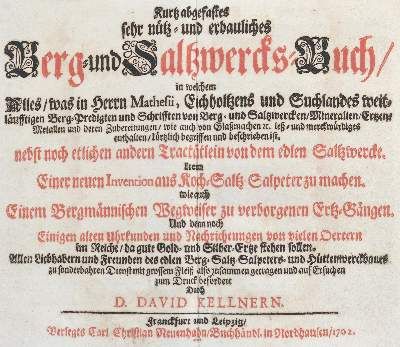 Kurtz abgefastes
sehr nütz- und erbauliches
Berg- und Saltzwercks-Buch/
in welchem
Alles/ was in Herrn Mathesii, Eichholtzens und Suchlandes weit-
läufftigen Berg-Predigten und Schrifften von Berg- und Saltzwercken/ Mineralien/ Ertzen
Metallen und deren Zubereitungen/ wie auch von Glaßmachen ꝛc. les- und merckwürdiges
enthalten/ kürtzlich begriffen und beschrieben ist.
nebst noch etlichen andern Tractätlein von dem edlen Saltzwercke.
Item
Einer neuen Invention aus Koch-Saltz Salpeter zu machen.
wie auch
Einem Bergmännischen Wegweiser zu verborgenen Ertz-Gängen.
Und denn noch
Einigen alten Uhrkunden und Nachrichtungen von vielen Oertern
im Reiche/ da gute Gold- und Silber-Ertze stehen sollen.
Allen Liebhabern und Freunden des edlen Berg- Saltz- Salpeter- und Hüttenwerckbaues
zu sonderbahren Dienst mit grossem Fleiß also zusammen getragen und auf Ersuchen
zum Druck befördert
Durch
D. DAVID KELLNERN.
Franckfurt und Leipzig/
Verlegts Carl Christian Neuenhahn/ Buchhändl. in Nordhausen/ 1702.